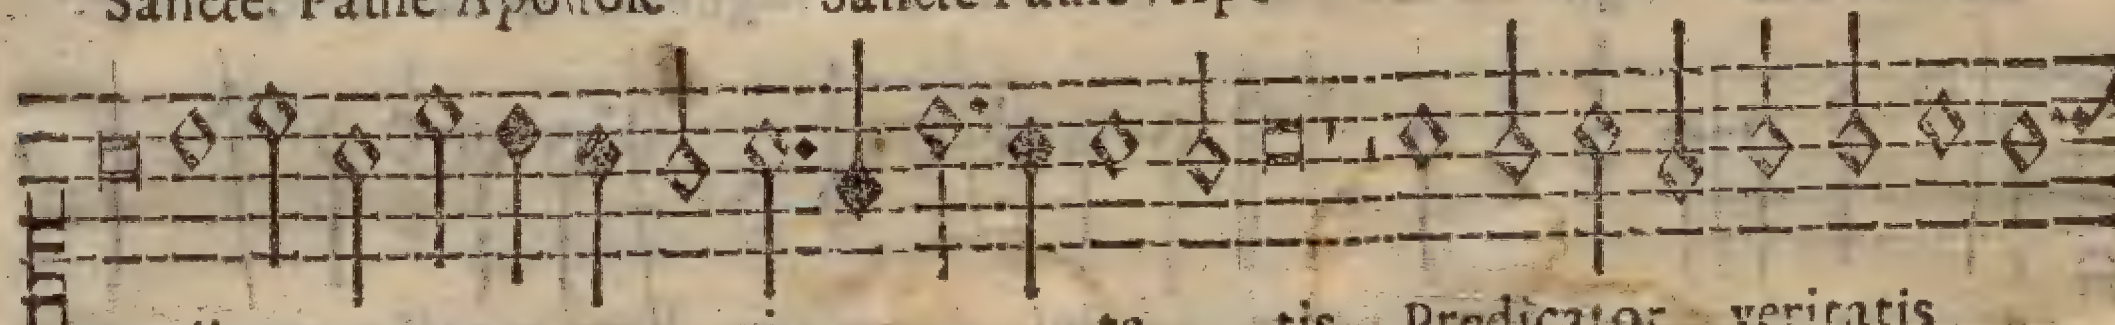 Sancte. Paule Apostole Sancte Paule
ta tis Predicator veritatis